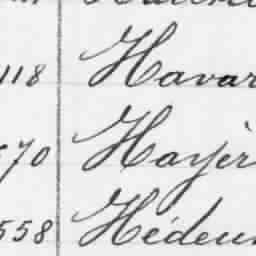 118 Havar
70 Hayèr
558 Hédeu